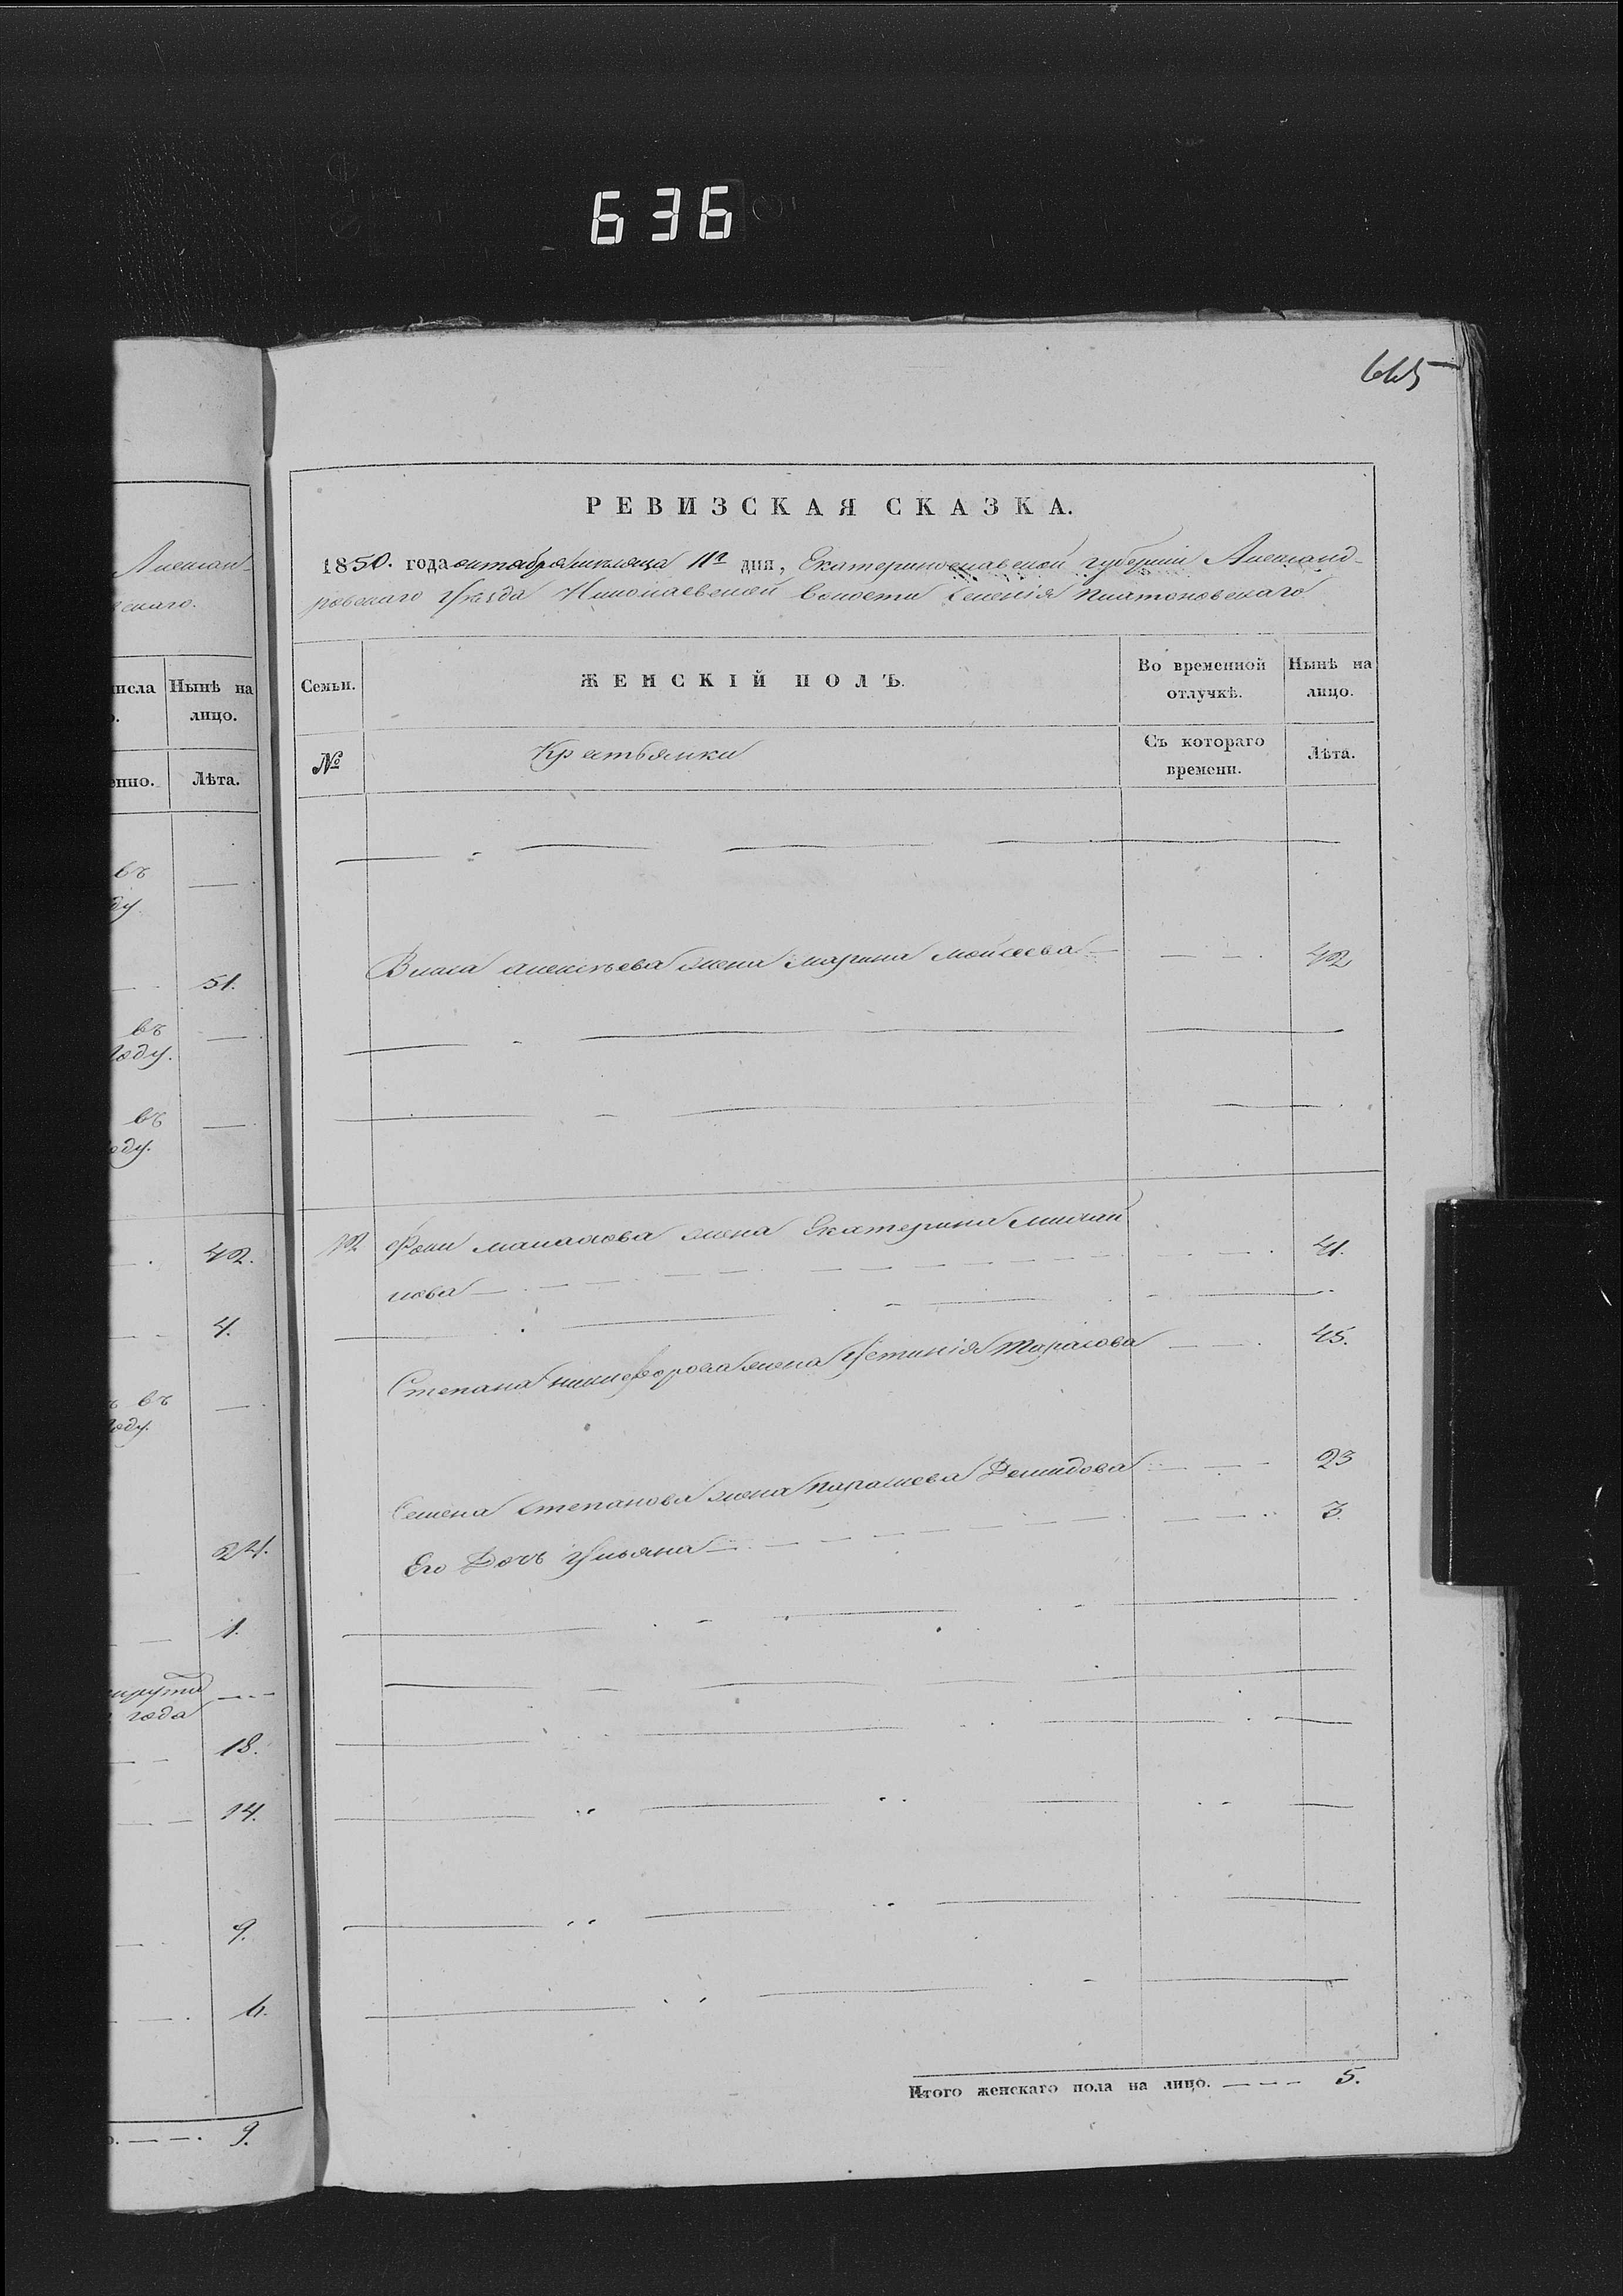 636
665
РЕВИЗСКАЯ СКАЗКА.
1850. года октября месяца 11го дня, Екатеринославской губернии Александ-
ровскаго уѣзда Николаевской волости селенія Платоновскаго
Семьи.
ЖЕНСКІЙ ПОЛЪ.
Во временной отлучкѣ.
Нынѣ на лицо.
№
Крестьянки
Съ котораго времени.
Лѣта.
Власа Алексѣева жена Марина Моисеева 42
12 Фоки жена Екатерина
41.
Степана Никифорова жена Устинія Тарасова 45.
Семена Степанова жена Парасковея Демидова 23
Его Дочь Ульяна 3.
Итого женскаго пола на лицо. 5.
Алексан-
вскаго.
исла
Нынѣ на
лицо.
енно.
Лѣта.
въ
ду
51.
въ
году.
въ
оду.
42.
4.
въ
году.
24.
1.
года
18.
14.
9.
6.
9.